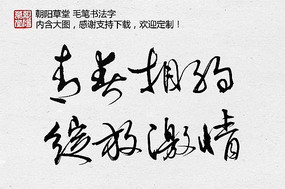 朝阳草堂 毛笔书法字
内含大图，感谢支持下载，欢迎定制！
青春相约
绽放激情